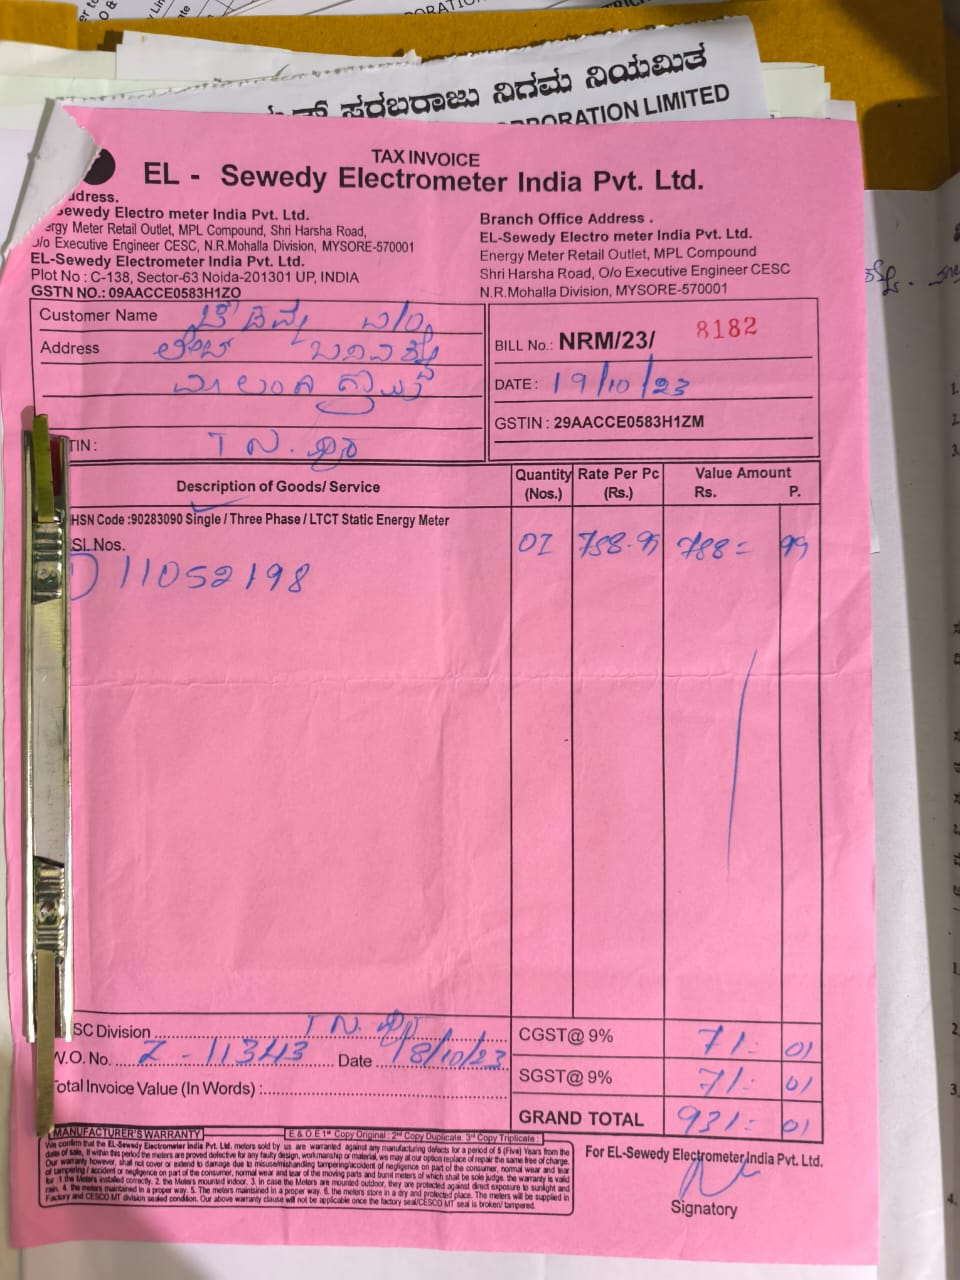 ಸರಬರಾಜು ನಿಗಮ ನಿಯಮಿತ
CORPORATION LIMITED
TAX INVOICE
EL - Sewedy Electrometer India Pvt. Ltd.
ddress.
Sewedy Electro meter India Pvt. Ltd.
ergy Meter Retail Outlet, MPL Compound, Shri Harsha Road,
/o Executive Engineer CESC, N.R.Mohalla Division, MYSORE-570001
EL-Sewedy Electrometer India Pvt. Ltd.
Plot No : C-138, Sector-63 Noida-201301 UP, INDIA
GSTN NO.: 09AACCE0583H1ZO
Branch Office Address .
EL-Sewedy Electro meter India Pvt. Ltd.
Energy Meter Retail Outlet, MPL Compound
Shri Harsha Road, O/o Executive Engineer CESC
N.R.Mohalla Division, MYSORE-570001
Customer Name
Address
TIN :
BILL No.: NRM/23/ 8182
DATE : 19/10/23
GSTIN : 29AACCE0583H1ZM
Description of Goods/ Service Quantity (Nos.) Rate Per Pc (Rs.) Value Amount Rs. P.
HSN Code :90283090 Single / Three Phase / LTCT Static Energy Meter
Sl. Nos. 01 788.99 788= 99
1) 11052198
SC Division
W.O. No. Z-11343 Date 18/10/23
Total Invoice Value (In Words) :
CGST@ 9% 71= 01
SGST@ 9% 71= 01
GRAND TOTAL 931= 01
MANUFACTURER'S WARRANTY E.& O.E 1st Copy Original : 2nd Copy Duplicate: 3rd Copy Triplicate :
We confirm that the EL-Sewedy Electrometer India Pvt. Ltd. meters sold by us are warranted against any manufacturing defects for a period of 5 (Five) Years from the
date of sale. If within this period the meters are proved defective for any faulty design, workmanship or material, we may at our option replace of repair the same free of charge.
Our warranty however, shall not cover or extend to damage due to misuse/mishandling tampering/accident of negligence on part of the consumer, normal wear and tear
of tampering / accident or negligence on part of the consumer, normal wear and tear of the moving parts and burnt meters of which shall be sole judge. the warranty is valid
for :1 the Meters installed correctly. 2. the Meters mounted indoor. 3. in case the Meters are mounted outdoor, they are protected against direct exposure to sunlight and
rain. 4. the meters maintained in a proper way. 5. The meters maintained in a proper way. 6. the meters store in a dry and protected place. The meters will be supplied in
Factory and CESCO MT division sealed condition. Our above warranty clause will not be applicable once the factory seal/CESCO MT seal is broken/ tampered.
For EL-Sewedy Electrometer India Pvt. Ltd.
Signatory